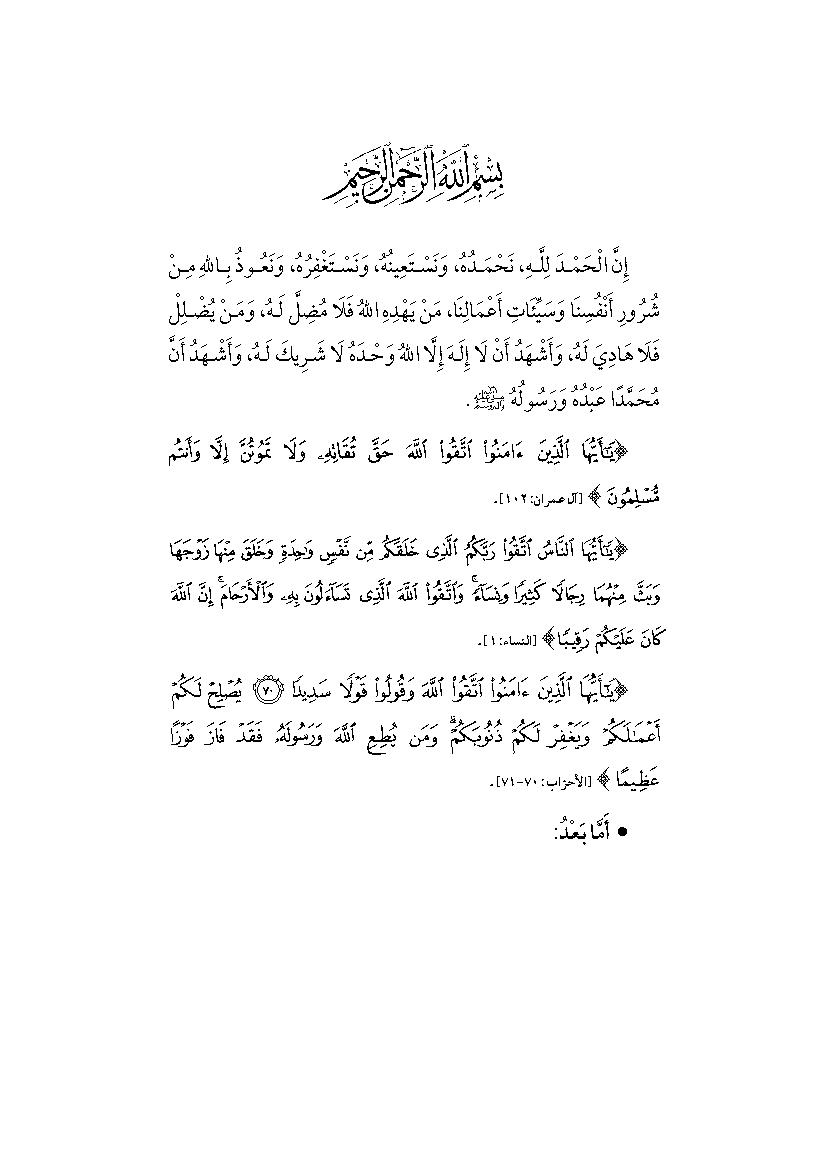 بِسْمِ اللَّهِ الرَّحْمَٰنِ الرَّحِيمِ
إِنَّ الْحَمْدَ لِلَّهِ، نَحْمَدُهُ، وَنَسْتَعِينُهُ، وَنَسْتَغْفِرُهُ، وَنَعُوذُ بِاللهِ مِنْ
شُرُورِ أَنْفُسِنَا وَسَيِّئَاتِ أَعْمَالِنَا، مَنْ يَهْدِهِ اللهُ فَلَا مُضِلَّ لَهُ، وَمَنْ يُضْلِلْ
فَلَا هَادِيَ لَهُ، وَأَشْهَدُ أَنْ لَا إِلَهَ إِلَّا اللهُ وَحْدَهُ لَا شَرِيكَ لَهُ، وَأَشْهَدُ أَنَّ
مُحَمَّدًا عَبْدُهُ وَرَسُولُهُ ﷺ.
﴿يَٰٓأَيُّهَا ٱلَّذِينَ ءَامَنُوا۟ ٱتَّقُوا۟ ٱللَّهَ حَقَّ تُقَاتِهِۦ وَلَا تَمُوتُنَّ إِلَّا وَأَنتُم
مُّسْلِمُونَ ﴾ [آل عمران: ١٠٢].
﴿يَٰٓأَيُّهَا ٱلنَّاسُ ٱتَّقُوا۟ رَبَّكُمُ ٱلَّذِى خَلَقَكُم مِّن نَّفْسٍ وَٰحِدَةٍ وَخَلَقَ مِنْهَا زَوْجَهَا
وَبَثَّ مِنْهُمَا رِجَالًا كَثِيرًا وَنِسَآءً ۚ وَٱتَّقُوا۟ ٱللَّهَ ٱلَّذِى تَسَآءَلُونَ بِهِۦ وَٱلْأَرْحَامَ ۚ إِنَّ ٱللَّهَ
كَانَ عَلَيْكُمْ رَقِيبًا﴾ [النساء: ١].
﴿يَٰٓأَيُّهَا ٱلَّذِينَ ءَامَنُوا۟ ٱتَّقُوا۟ ٱللَّهَ وَقُولُوا۟ قَوْلًا سَدِيدًا ٧٠ يُصْلِحْ لَكُمْ
أَعْمَٰلَكُمْ وَيَغْفِرْ لَكُمْ ذُنُوبَكُمْ ۗ وَمَن يُطِعِ ٱللَّهَ وَرَسُولَهُۥ فَقَدْ فَازَ فَوْزًا
عَظِيمًا ﴾ [الأحزاب: ٧٠-٧١].
● أَمَّا بَعْدُ: